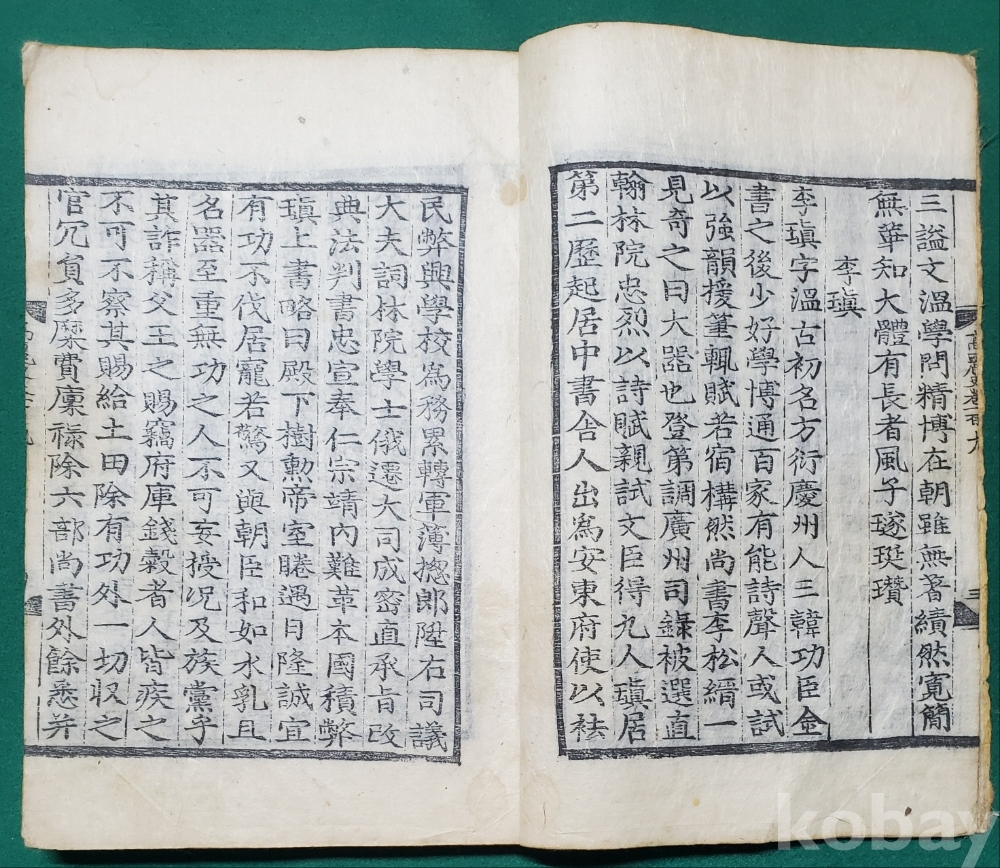 三謚文溫學問精博在朝雖無著績然寬簡
無華知大體有長者風子瑹珽瓚
李瑱
李瑱字溫古初名方衍慶州人三韓功臣金
書之後少好學博通百家有能詩聲人或試
以強韻援筆輒賦若宿構然尚書李松縉一
見奇之曰大器也登第調廣州司錄被選直
翰林院忠烈以詩賦親試文臣得九人瑱居
第二歷起居中書舍人出爲安東府使以祛
民弊興學校爲務累轉軍薄揔郎陞右司議
大夫詞林院學士俄遷大司成密直承旨改
典法判書忠宣奉仁宗靖內難革本國積弊
瑱上書略曰殿下樹勳帝室睠遇日隆誠宜
有功不伐居寵若驚又與朝臣和如水乳且
名器至重無功之人不可妄授況及族黨乎
其詐稱父王之賜竊府庫錢穀者人皆疾之
不可不察其賜給土田除有功外一切収之
官冗貟多糜費廩祿除六部尚書外餘悉并
高麗史卷一百九
三
kobay